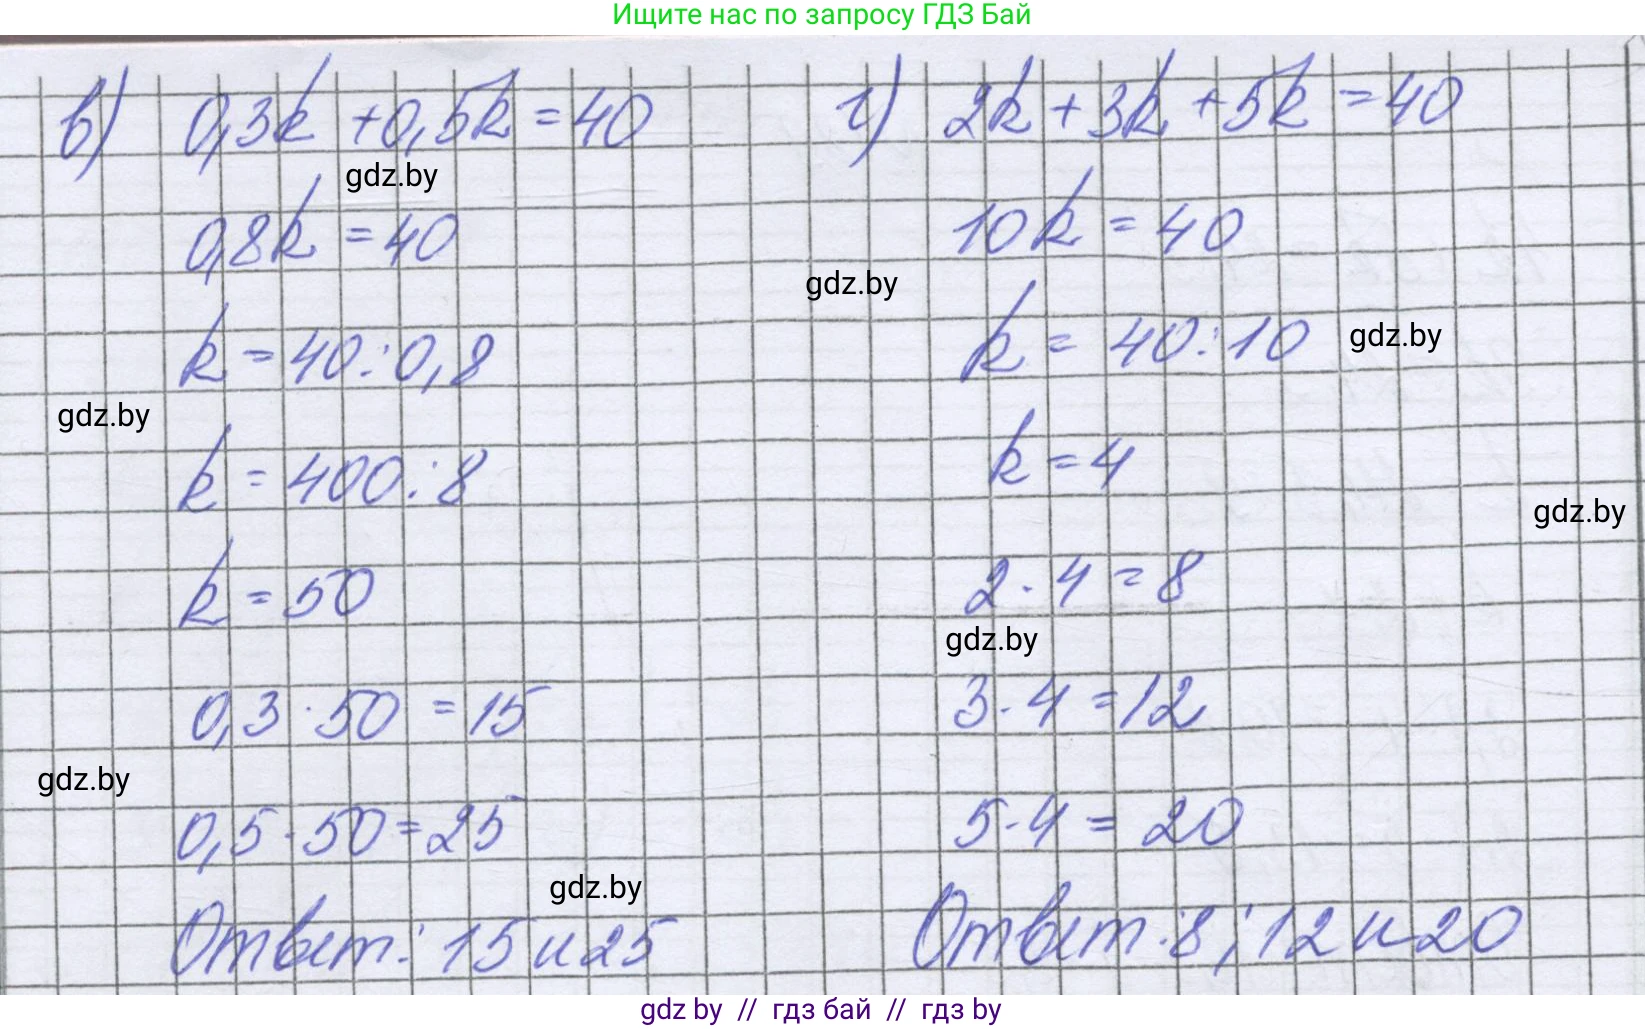 Ищите нас по запросу ГДЗ Бай
в) 0,3k + 0,5k = 40
gdz.by
0,8k = 40
k = 40 : 0,8
gdz.by
k = 400 : 8
k = 50
0,3 · 50 = 15
gdz.by
0,5 · 50 = 25
gdz.by
Ответ: 15 и 25
г) 2k + 3k + 5k = 40
10k = 40
gdz.by
k = 40 : 10
gdz.by
k = 4
gdz.by
2 · 4 = 8
gdz.by
3 · 4 = 12
5 · 4 = 20
Ответ: 8; 12 и 20
gdz by // гдз бай // гдз by